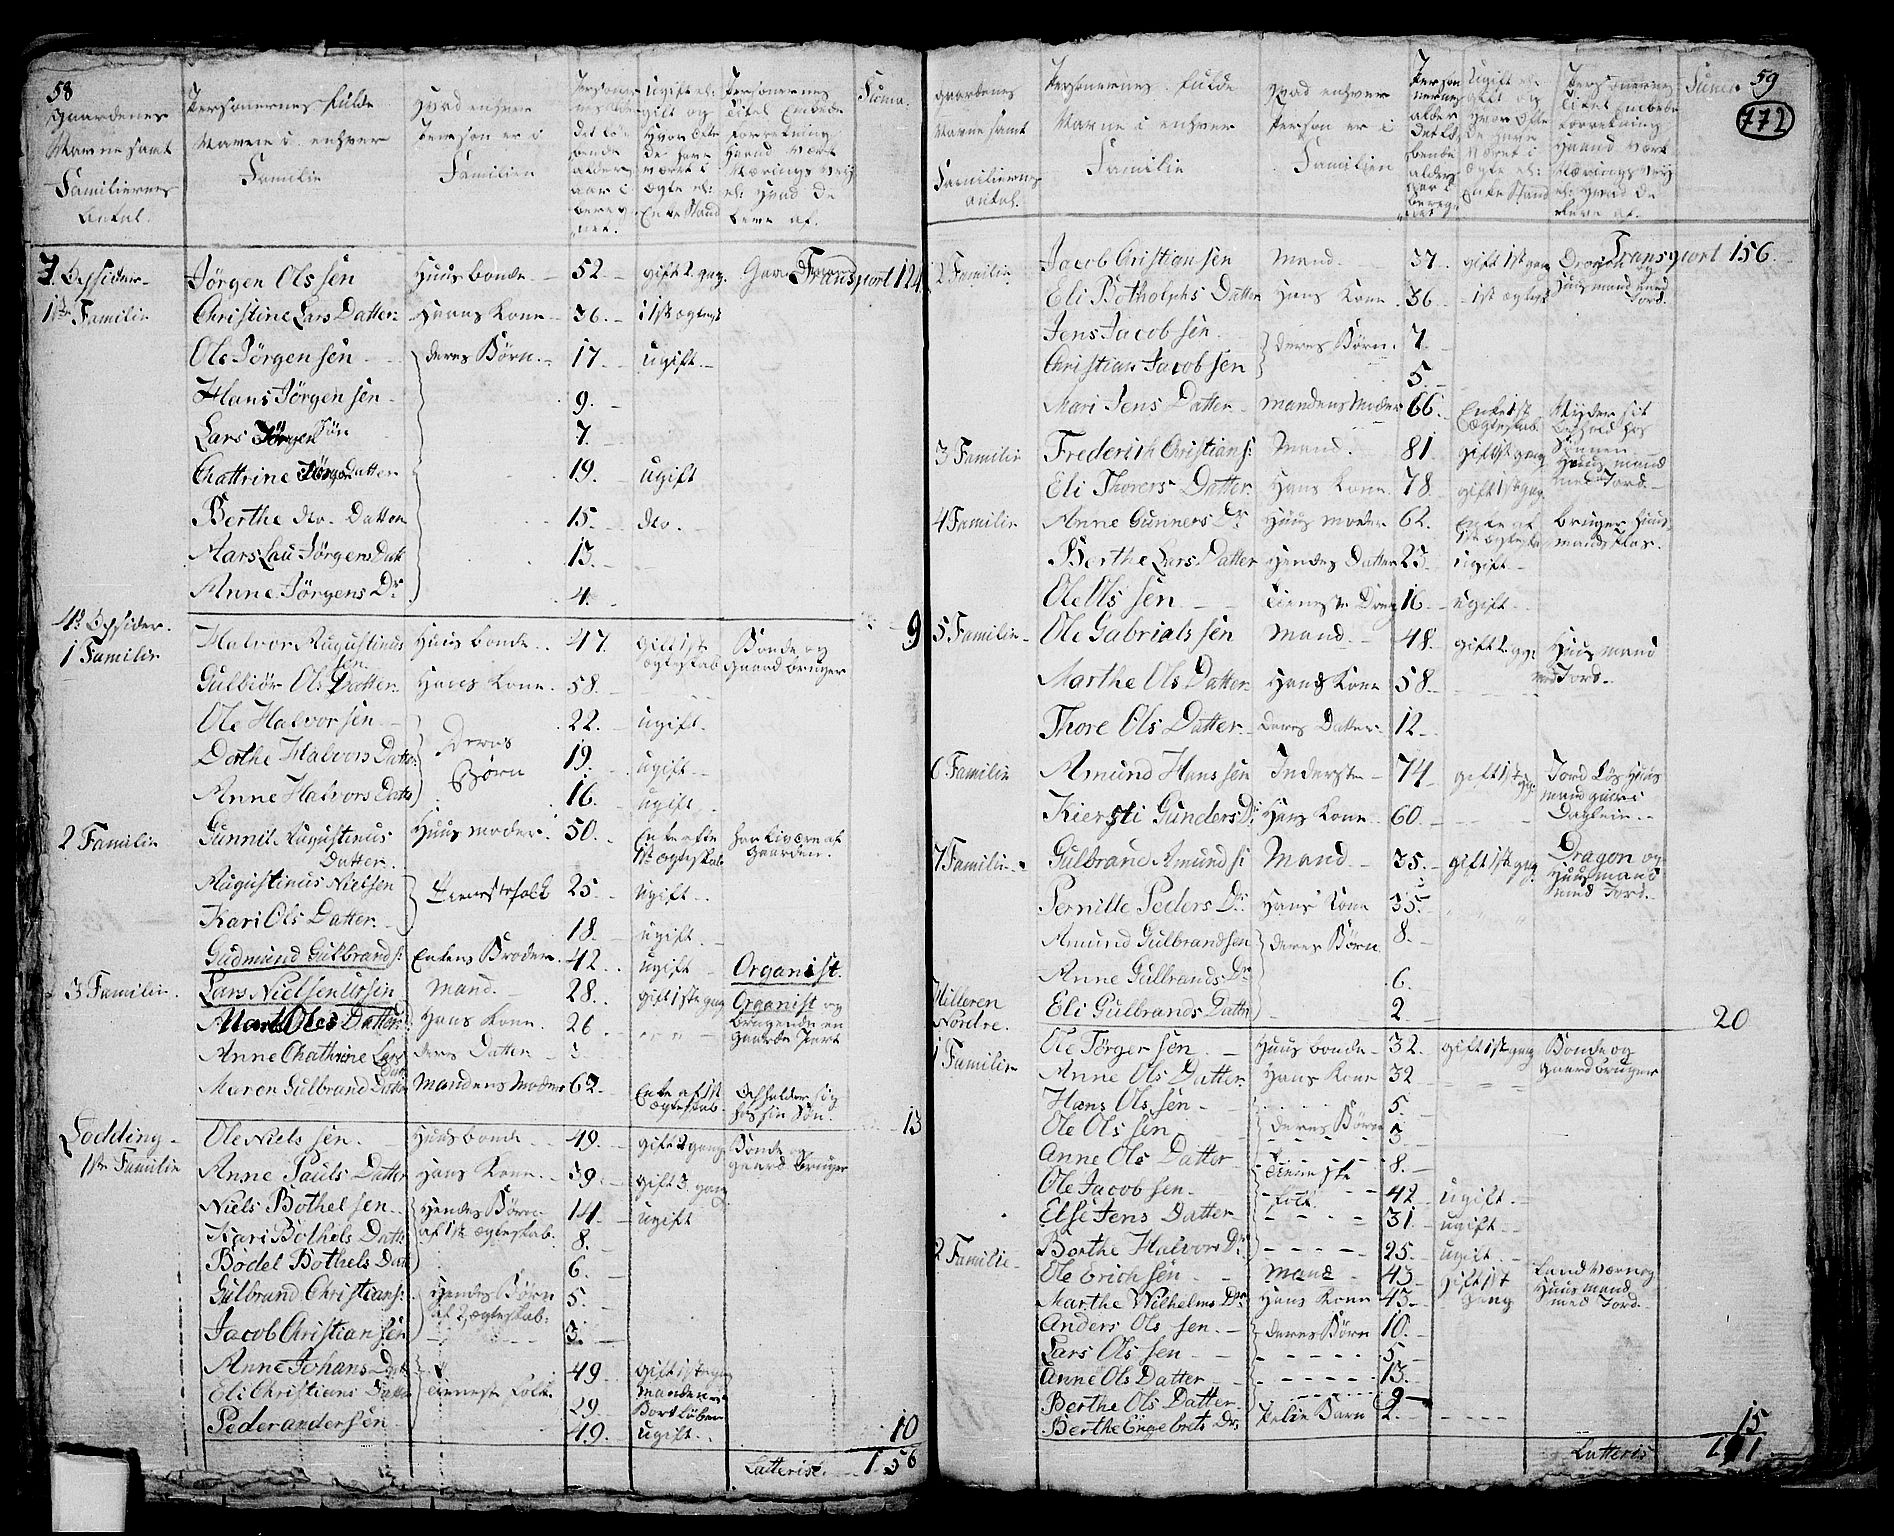 58
Gaardenes
Navne samt
Familiernes
Antal.
Personernes fulde
Navne i enhver
Familie
Hvad enhver
Person er i
Familien
Ugift el:
gift og
hvor ofte
de have
været i
Ægte el:
Enke Stand
Personernes
Titel Embede
Forretning
Haand Værk
Nærings Vej
el: hvad de
leve af.
Suma.
Transport 124
1ste Familie
Jörgen Olssen Huusbonde 52. gift 2 gag.
Christine Lars Datter Hans Kone 36. i 1st ægtesk
Ole Jörgensen deres Börn 17 ugift
Hans Jörgensen 9.
Lars Jörgensön 7.
Chattrine Jörgen Datter 19. ugift
Berthe dto. Datter 15. dto.
Jörgens Datt 13.
Anne Jörgens Dr. 4.
9
1 Familie
Halvor Augustinus
sen Huusbonde 47. gift 1st
Ægteskab Bonde og
Gaardbruger
Gulbiör Ols Datter Hans Kone 58.
Ole Halvorsen Deres
Börn 22. ugift
Dorthe Halvors Datter 19. ugift
Anne Halvors Datter 16. ugift
2 Familie
Gunnil Augustinus
Datter Huusmoder 50. Enke efter
1st ægteskab har Livøre af
Gaarden.
Augustinus Nielsen Tienestefolk 25 ugift
Kari Ols Datter 18. ugift
Gudmund Gulbrands: Enkens Broder 42. ugift Organist.
3 Familie.
Lars Nielsen Mand. 28. gift 1ste gag Organist og
brugende en
Gaarde Part
Ols Datter Hans Kone 26
Anne Chathrine Lars
Dat deres Datter
Maren Gulbrand Datter Mandens Moder 62. Enke af 1st
Ægteskab. Opholder sig
hos sin Sön.
13
1ste Familie
Ole Nielssen. Huusbonde 49. gift 2 gang Bonde og
gaard bruger
Anne Pauls Datter Hans Kone 39. gift 3. gang
Niels Bothelsen Hendes Börn
af 1st ægteskab. 14 ugift
Kari Bothels Datt 8.
Bodel Bothels Datt 6.
Gulbrand Christians: Hendes Börn
af 2. ægteskab. 5.
Jacob Christiansen 3.
Anne Johans Datt Tieneste folk 49 gift 1st gang
Manden er
Bortlöben
Eli Christians Datter 29
Peder andersen 49. ugift
10
Latteris. 156
59
772
Gaardenes
Navne samt
Familiernes
antal.
Personernes fulde
Navne i enhver
Familie
Hvad enhver
Person er i
Familien
Ugift el:
gift og
hvor ofte
de have
været i
Ægte el:
Enke Stand
Personernes
Titel Embede
Forretning
Haand Værk
Nærings Vej
el: hvad de
leve af.
Transport 156
2 Familie
Jacob Christiansen Mand. 37. gift 1st gag Dragon og
Huusmand med
Jord.
Eli Botholphs Datter Hans Kone 36. 1st ægtes
Jens Jacobsen deres Börn. 7
Christian Jacobsen 5.
Mari Jens Datter Mandens Moder 66. Enke 1st
Ægteskab Nyder sit
Ophold hos
Sönnen
3 Familie
Frederich Christians: Mand. 81. gift 1st gang Huusmand
med Jord.
Eli Thorers Datter Hans Kone. 78. gift 1st gag
4 Familie
Anne Gunners Dr. Huusmoder 62. Enke af
1st ægteskab bruger Huus
mands Plas.
Berthe Lars Datter Hendes Datter 25. ugift
Ole Olssen Tieneste Dreng 16 ugift
5 Familie
Ole Gabrielssen Mand. 48. gift 2. gag Huusmand
med Jord.
Marthe Ols Datter Hans Kone 58.
Thore Ols Datter deres Datter 12
6 Familie
Amund Hanssen Inderste 74 gift 1st gag Jord Lös Huus
mand
Kiersti Gunders D: Hans Kone 60.
7 Familie
Gulbrand Amunds: Mand 35. gift 1st gag Dragon og
Huusmand
med Jord.
Pernille Peders D: Hans Kone 35.
Amund Gulbrandsen deres Börn 8.
Anne Gulbrands Dr. 6.
Eli Gulbrands Datter 2
20
Hilleren
Nordre.
1 Familie
Ole Jörgensen. Huusbonde 32. gift 1st gag Bonde og
gaardbruger
Anne Ols Datter. Hans Kone 32
Hans Olssen 5.
Ole Olssen deres Börn 3
Anne Ols Datter 8.
Ole Jacobsen Tieneste
folk 42 ugift
Else Jens Datter 31. ugift
Berthe Halvors Dr. 25. ugift
2 Familie
Ole Erichsen Mand 43 gift 1st
gang Landværn og
Huusmand
med Jord
Marthe Wilhelms Dr. Hans Kone 43
Anders Olssen. deres Börn 10.
Lars Olssen 5
Anne Ols Datter 13
Berthe Ols Datter 9
Berthe Engebrets Dr. Pleie Barn 2.
15
Latteris